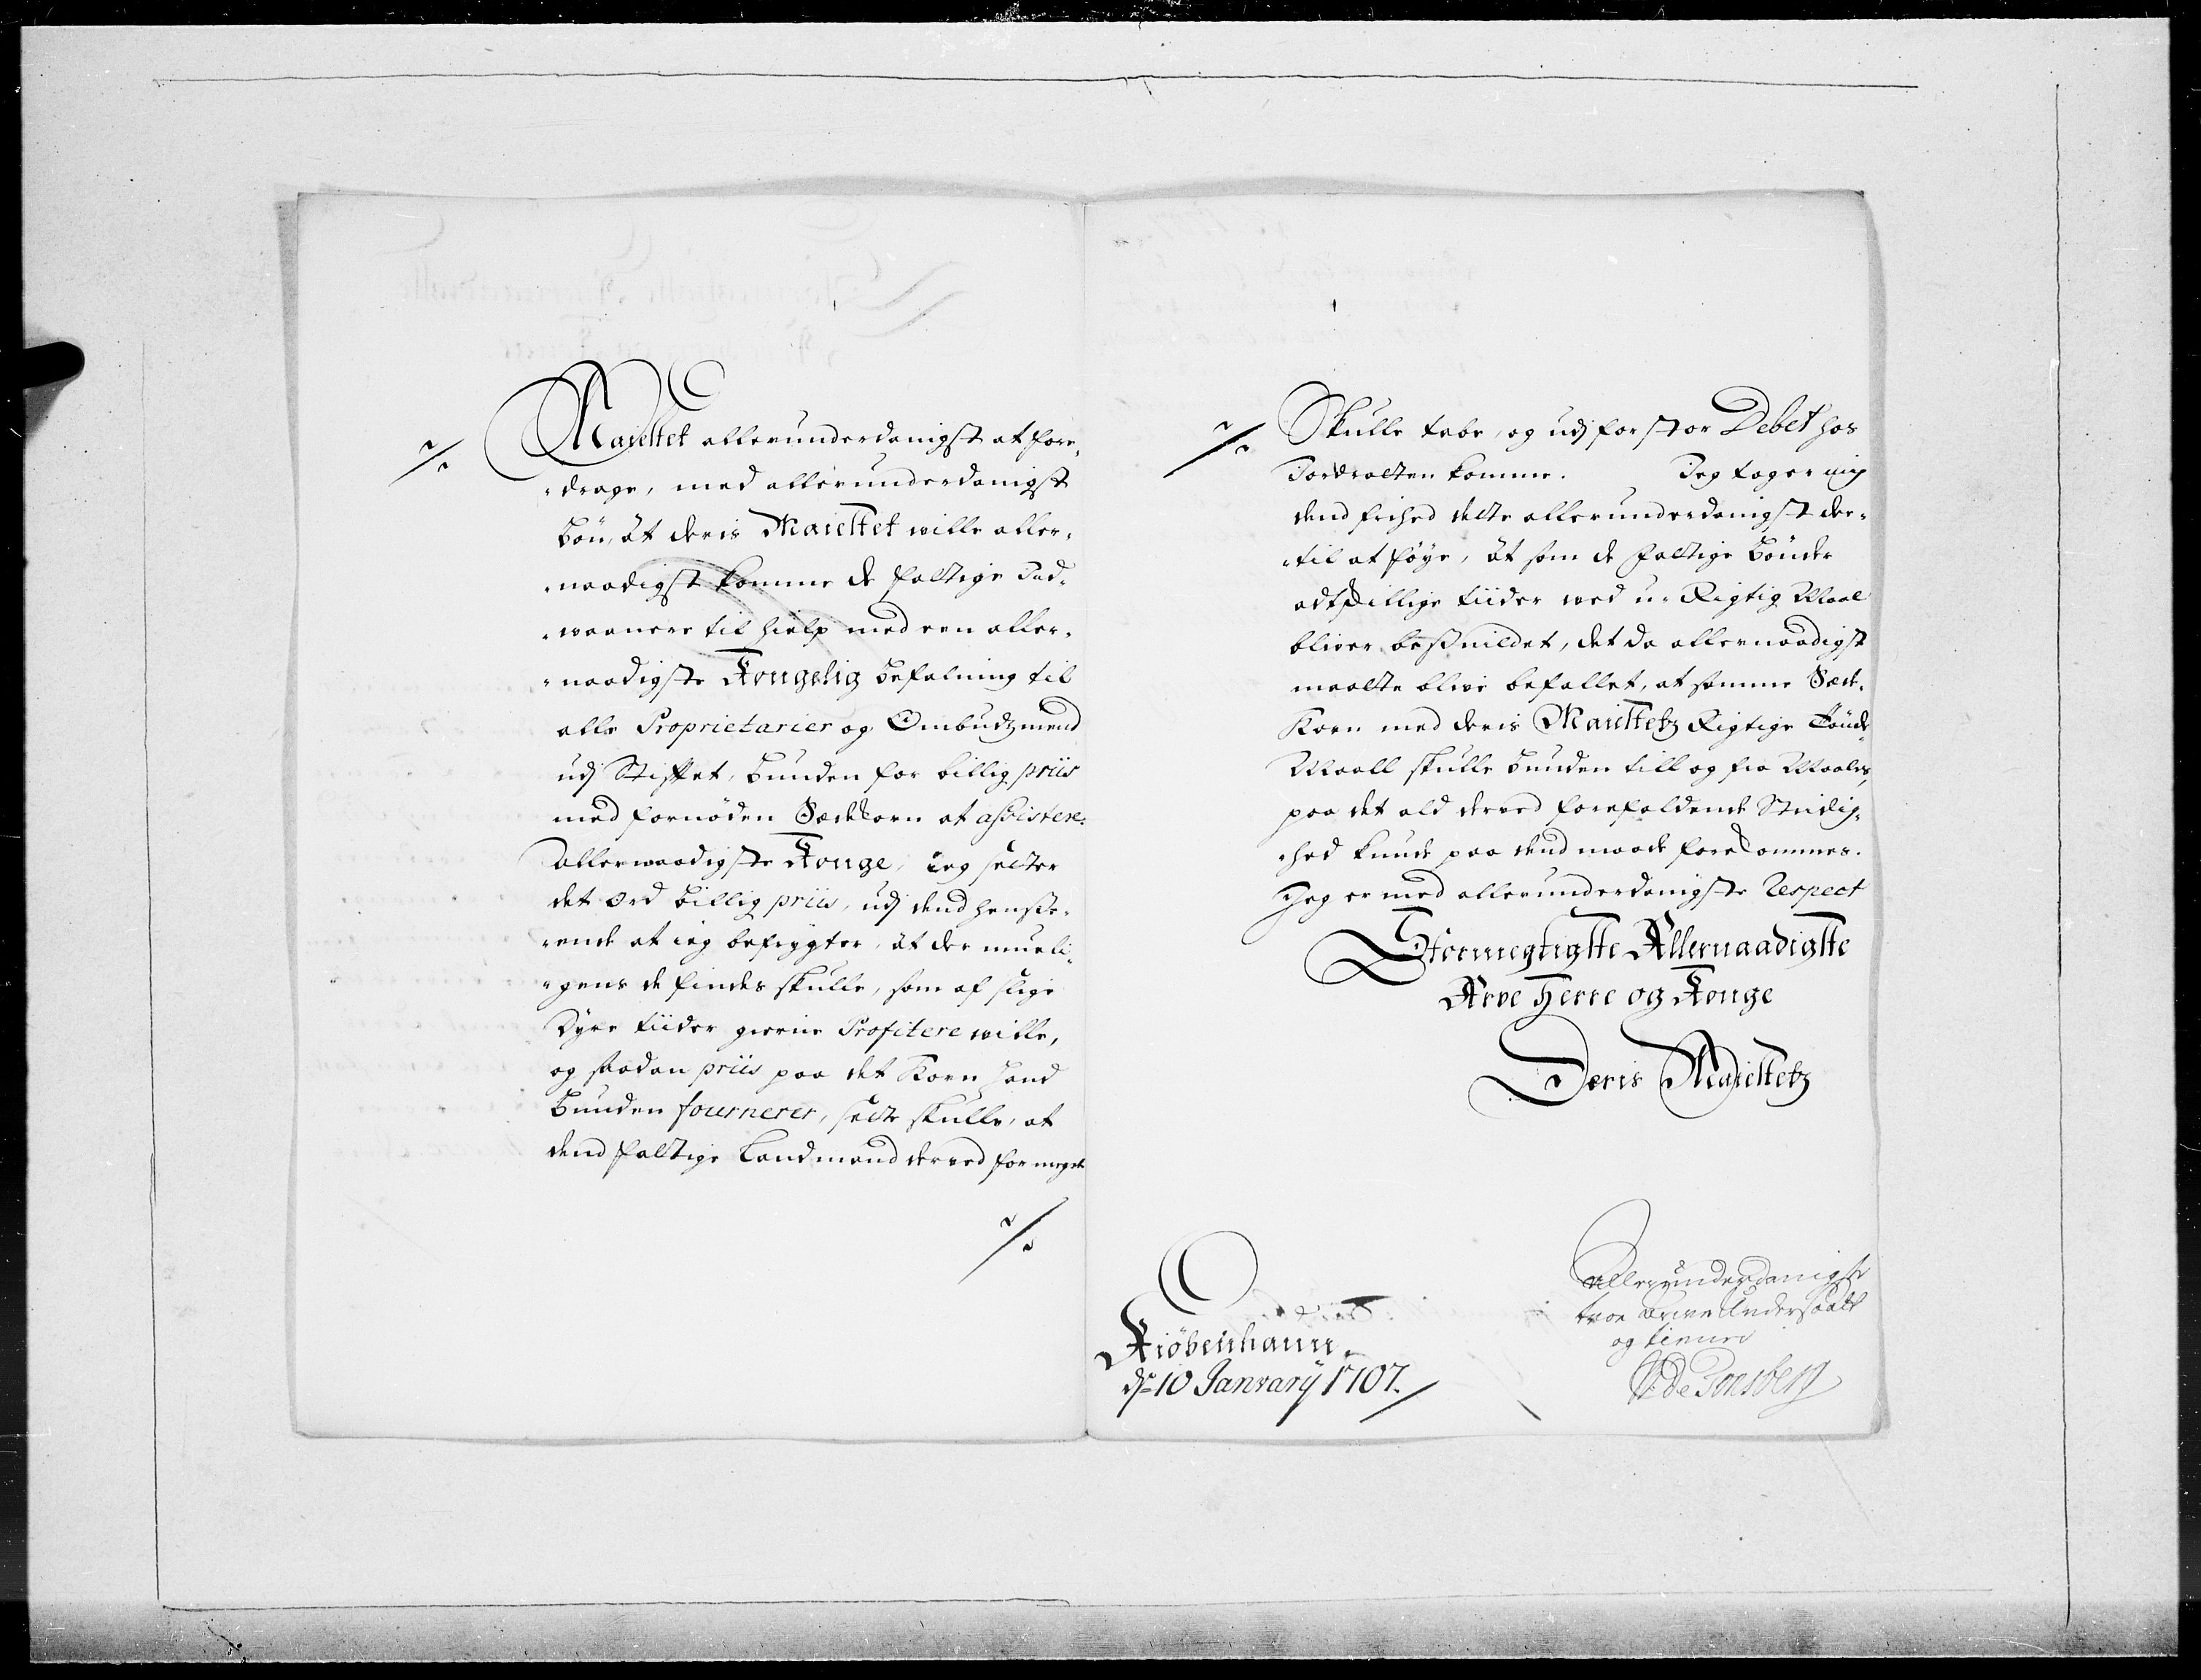 Majestet allerunderdanigst at fore-
-drage, med allerunderdanigst
Bön, at deris Maiestet wille aller-
-naadigst komme de fattige Ind-
-waanere til hielp med een aller-
-naadigste Kongelig befalning til
alle Proprietarier og Ombudzmend
udj Stiftet, bunden for billig priis
med fornöden Sædekorn at assistere.
Allernaadigste Konge, ieg setter
det ord billig priis, udj dend henste-
-ende at ieg befrygter, at der mueli-
-gens de findes skulle, som af slige
Dyre tiider gierne Profitere wille,
og saadan priis paa det Korn hand
Bunden fournerer, sette skulle, at
dend fattige Landmand derved for meget
Skulle tabe, og udj for stor Debet hos
Jordrotten komme. Jeg tager mig
dend frihed dette allerunderdanigst der-
-til at föye, at som de fattige bönder
adtskillige tiider ved u-Rigtig Maal
bliver besnildet, det da allernaadigst
maatte blive befallet, at samme Sæde-
Korn med deris Maiestetz Rigtige Tönde-
Maall skulle bunden till og fra Maales,
paa det ald derved forefaldende Stridig-
-hed kunde paa dend maade forekommes.
Jeg er med allerunderdanigste Respect
Stormegtigste Allernaadigste
Arve Herre og Konge
Deris Maiestetz
Kiöbenhaun,
ds 10 January 1707.
Allerunderdanigste
troe arve Undersaatt
og tienere
De Tonsberg